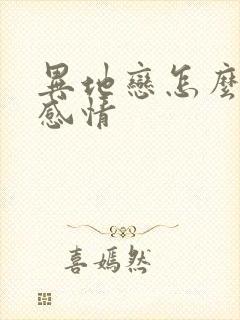 異地戀怎麼
感情
喜嫣然